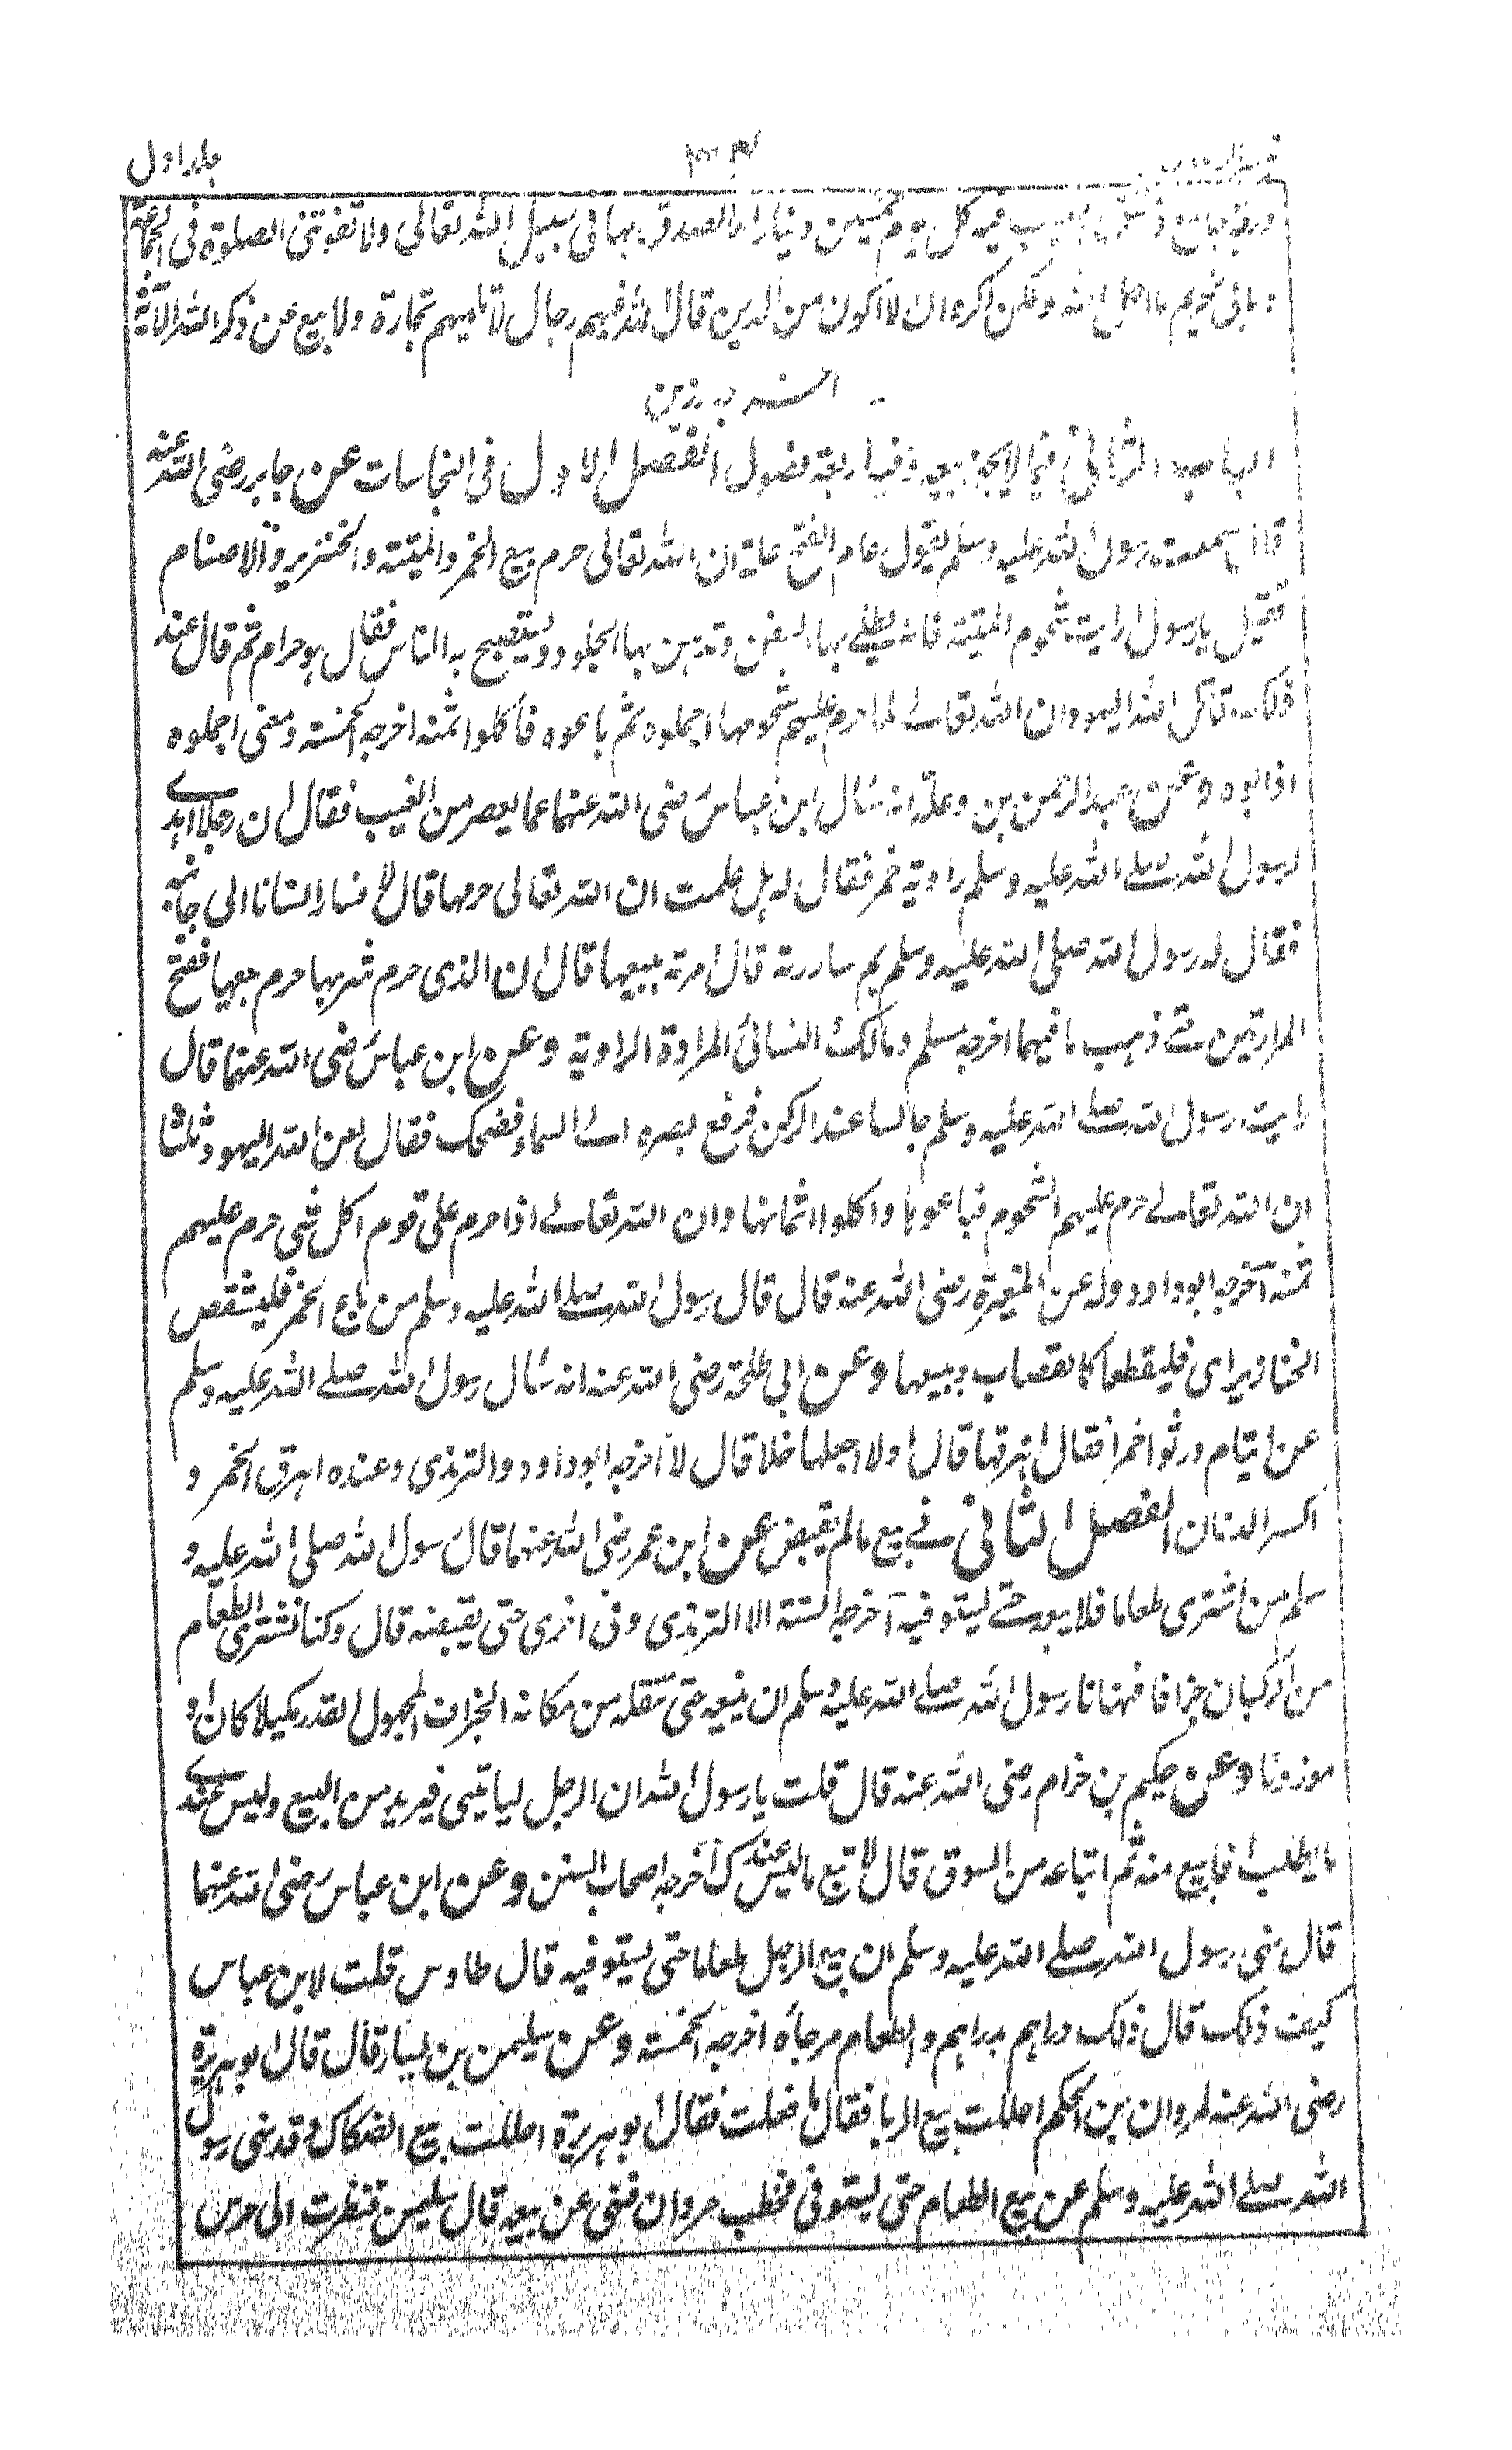 جلد اول
درجة جامع دمشق اصيب فيه كل يوم خمسين دينارا اتصدق بها فى سبيل الله تعالى ولا تفوتنى الصلوة فى الجماعة
وما بى تحريم ما احل الله ولكن اكره ان لا اكون من الذين قال الله فيهم رجال لا تلهيهم تجارة ولا بيع عن ذكر الله الآية
اخرجه رزين
الباب الثانى فيما لا يجوز بيعه وفيه اربعة فصول الفصل الاول فى النجاسات عن جابر رضى الله عنه
قال سمعت رسول الله عليه وسلم يقول عام الفتح بمكة ان الله تعالى حرم بيع الخمر والميتة والخنزير والاصنام
فقيل يا رسول ارايت شحوم الميتة فانه يطلى بها السفن وتدهن بها الجلود ويستصبح به الناس فقال هو حرام ثم قال عند
ذلك قاتل الله اليهود ان الله تعالے لما حرم عليهم شحومها اجملوه ثم باعوه فاكلوا ثمنه اخرجه الخمسة ومعنى اجملوه
اذابوه وعن عبد الرحمن بن وعلة انه سأل ابن عباس رضى الله عنهما عما يعصر من العنب فقال ان رجلا اهدے
لرسول الله صلے الله عليه وسلم راوية خمر فقال له هل علمت ان الله تعالى حرمها قال لا فسار انسانا الى جانبه
فقال له رسول الله صلى الله عليه وسلم بم ساررته قال امرته ببيعها قال ان الذى حرم شربها حرم بيعها ففتح
المزادتين حتے ذهب ما فيهما اخرجه مسلم ومالك النسائى المزادة الراوية وعن ابن عباس رضى الله عنهما قال
رايت رسول الله صلے الله عليه وسلم جالسا عند الركن فرفع بصره الے السماء فضحك فقال لعن الله اليهود ثلثا
ان الله تعالے حرم عليهم الشحوم فباعوها واكلوا اثمانها وان الله تعالے اذا حرم على قوم اكل شى حرم عليهم
ثمنه اخرجه ابو داود وله عن المغيرة رضى الله عنه قال قال رسول الله صلے الله عليه وسلم من باع الخمر فليشقص
الخنازير اى فليقطعها كالقصاب ويبيعها وعن ابى طلحة رضى الله عنه انه سأل رسول الله صلے الله عليه وسلم
عن ايتام ورثوا خمرا فقال اهرقها قال اولا اجعلها خلا قال لا اخرجه ابو داود والترمذى وعنده اهرق الخمر و
اكسر الدنان الفصل الثانى فے بيع مالم يقبض عن ابن عمر رضى الله عنهما قال رسول الله صلى الله عليه و
سلم من اشترى طعاما فلا يبعه حتے يستوفيه اخرجه الستة الا الترمذى وفى اخرى حتى يقبضه قال وكنا نشترى الطعام
من الركبان جزافا فنهانا رسول الله صلے الله عليه وسلم ان نبيعه حتى ننقله من مكانه الجزاف المجهول القدر مكيلا كان او
موزونا وعن حكيم بن حزام رضى الله عنه قال قلت يا رسول الله ان الرجل لياتينى فيريد من البيع وليس عندے
ما يطلب افابيع منه ثم ابتاعه من السوق قال لا تبع ما ليس عندك اخرجه اصحاب السنن وعن ابن عباس رضى الله عنهما
قال نهى رسول الله صلے الله عليه وسلم ان يبيع الرجل طعاما حتى يستوفيه قال طاوس قلت لابن عباس
كيف ذلك قال ذلك دراهم بدراهم والطعام مرجأه اخرجه الخمسة وعن سليمن بن يسار قال قال ابو هريرة
رضى الله عنه لمروان بن الحكم احللت بيع الربا فقال ما فعلت فقال ابو هريرة احللت بيع الضكاك وقد نهى رسول
الله صلے الله عليه وسلم عن بيع الطعام حتى يستوفى فخطب مروان فنهى عن بيعه قال سليمن فنظرت الى حرس